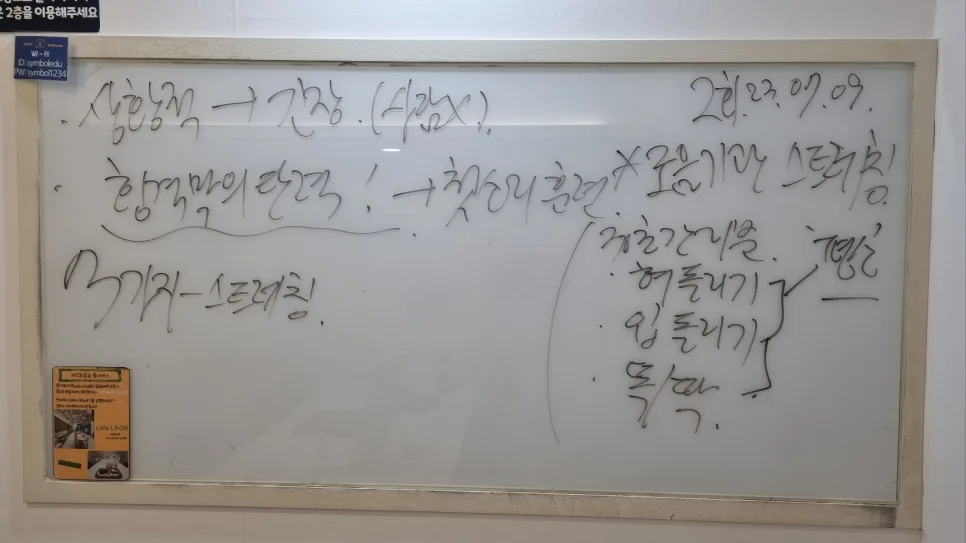 은 2층을 이용해주세요
WI-FI
ID:symboledu
PW:symbol1234
2회. 23. 07. 09.
· 상황적 → 긴장. (사람X).
· 횡격막의 탄력! → 첫소리 훈련.
3가지-스트레칭.
* 조음기관 스트레칭.
· 혀 돌리기
· 입 돌리기
· 똑/딱.
cafe LAON